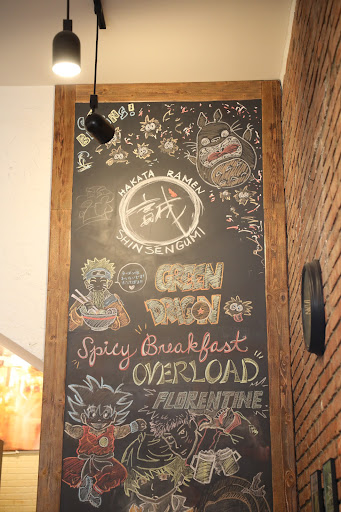 HAKATA RAMEN
誠
SHINSENGUMI
GREEN
DRAGON
Spicy Breakfast
OVERLOAD
FLORENTINE